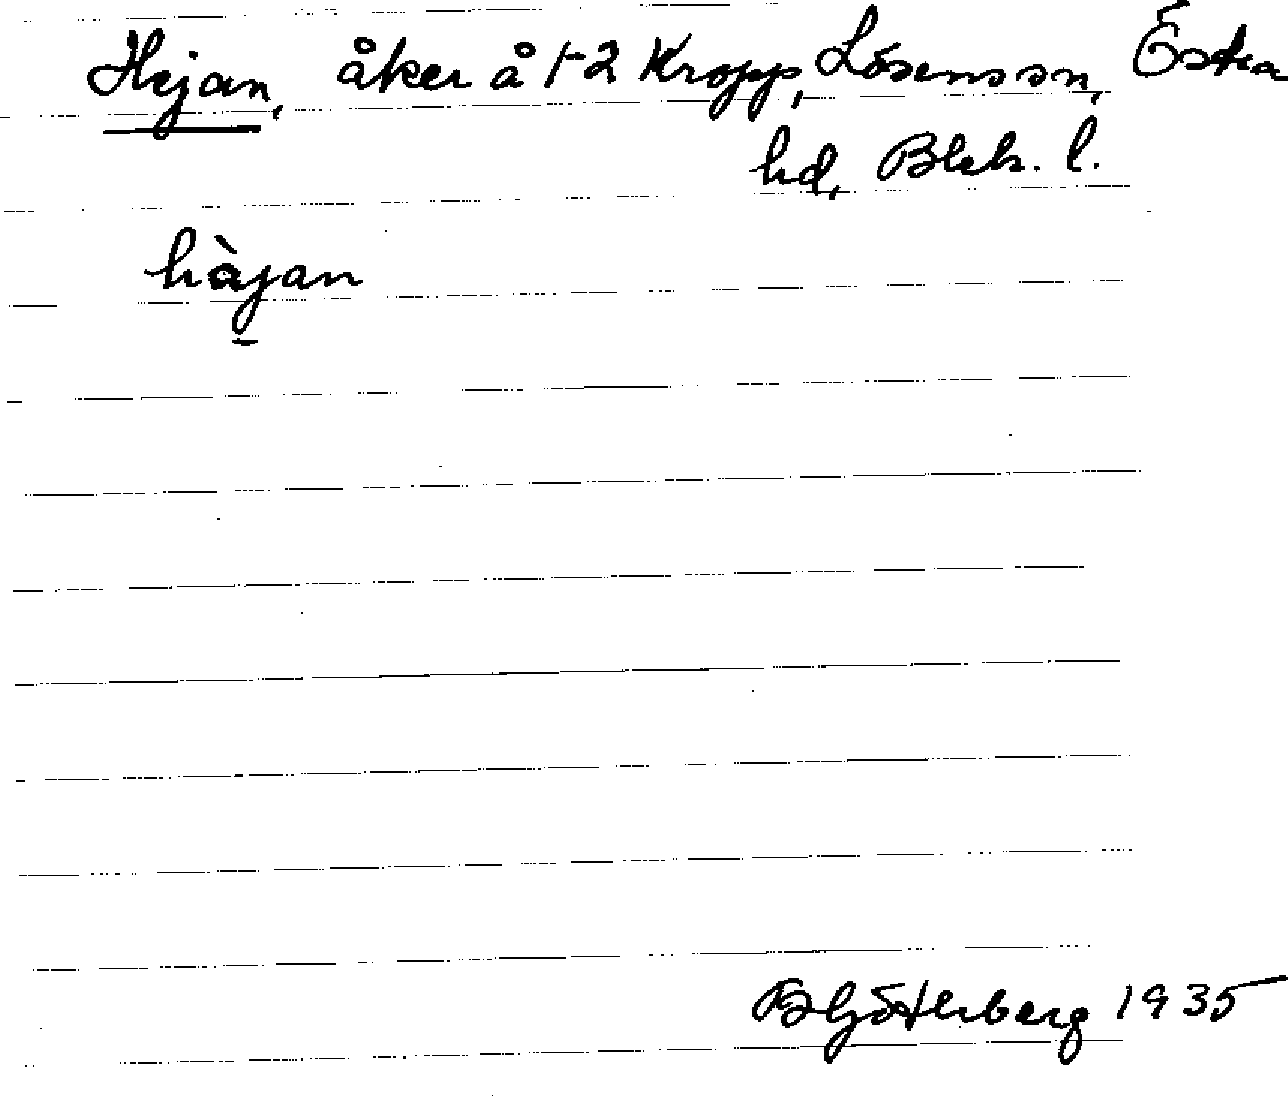 Hejan, åker å 1-2 Kropp, Lösens sn, Östra
hd, Blek. l.
hàjan
B Götlerberg 1935